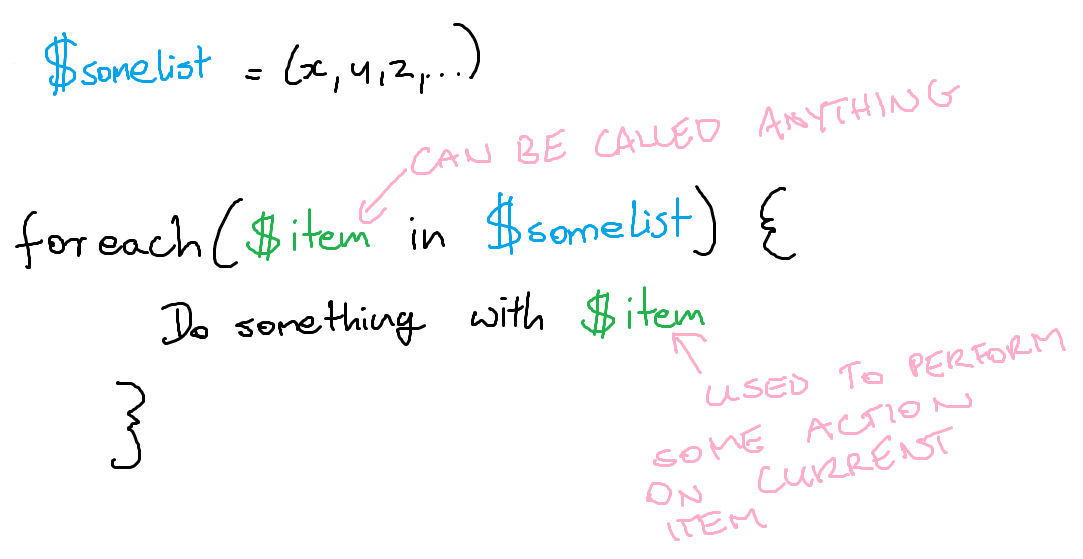 $somelist = (x, y, z, ...)
CAN BE CALLED ANYTHING
foreach($item in $somelist) {
Do something with $item
USED TO PERFORM
SOME ACTION
ON CURRENT
ITEM
}